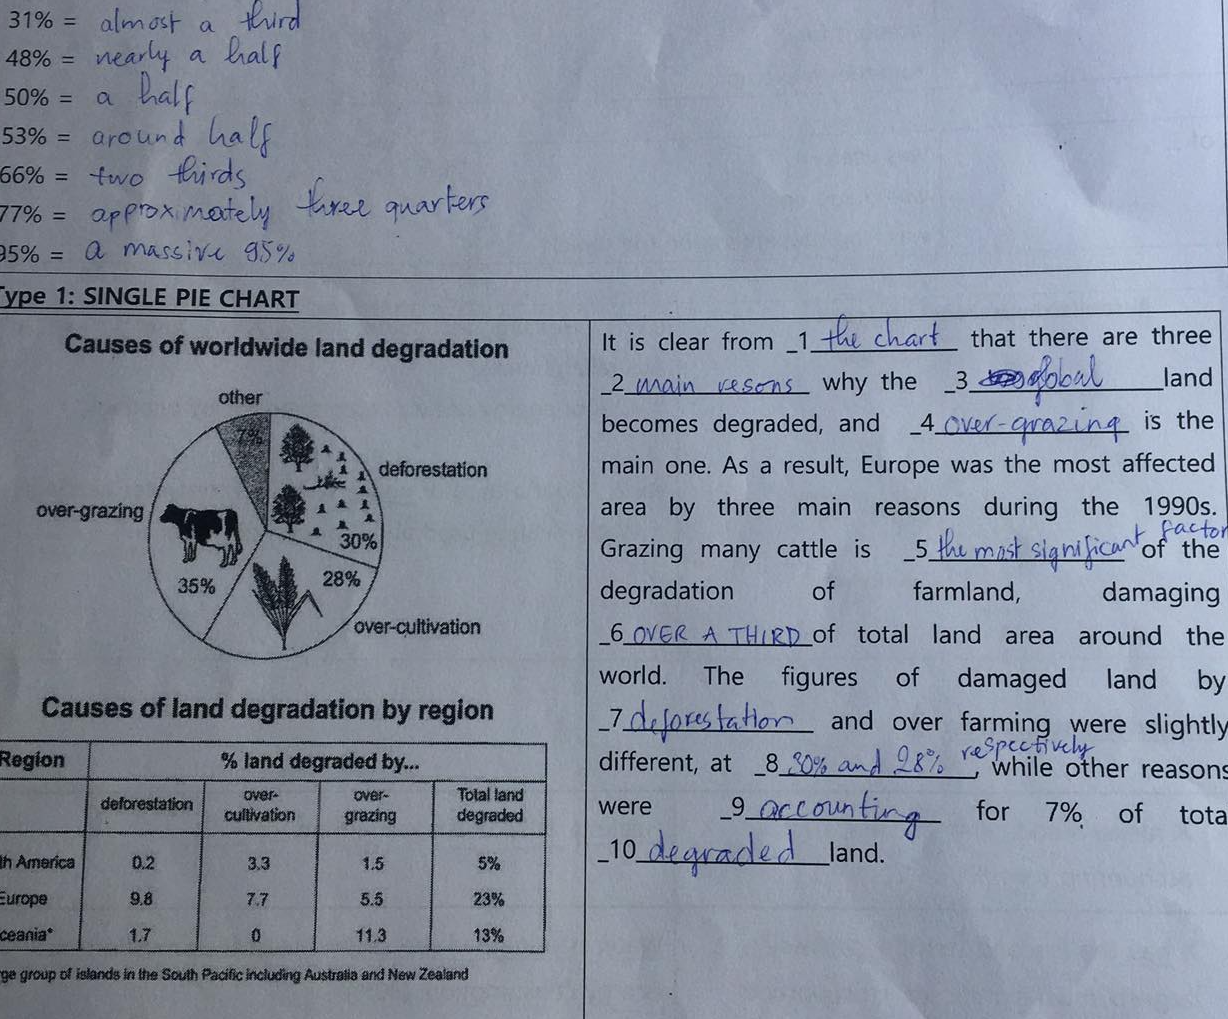 31% = almost a third
48% = nearly a half
50% = a half
53% = around half
66% = two thirds
77% = approximately three quarters
95% = a massive 95%
Type 1: SINGLE PIE CHART
Causes of worldwide land degradation
other
7%
deforestation
over-grazing
30%
35%
28%
over-cultivation
Causes of land degradation by region
Region % land degraded by...
deforestation over-cultivation over-grazing Total land degraded
th America 0.2 3.3 1.5 5%
Europe 9.8 7.7 5.5 23%
ceania* 1.7 0 11.3 13%
ge group of islands in the South Pacific including Australia and New Zealand
It is clear from _1 the chart that there are three
_2 main resons why the _3 global land
becomes degraded, and _4 over-grazing is the
main one. As a result, Europe was the most affected
area by three main reasons during the 1990s.
Grazing many cattle is _5 the most significant factor of the
degradation of farmland, damaging
_6 OVER A THIRD of total land area around the
world. The figures of damaged land by
_7 deforestation and over farming were slightly
different, at _8 30% and 28% respectively, while other reasons
were _9 accounting for 7% of tota
_10 degraded land.